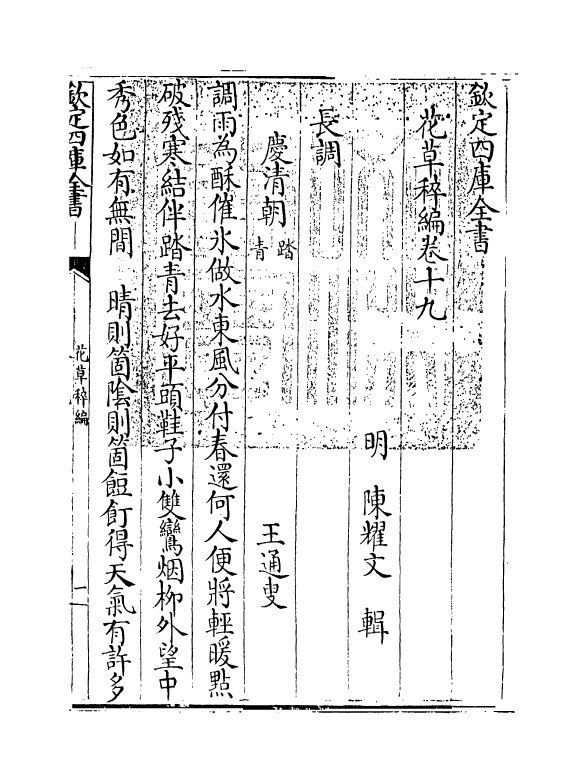 欽定四庫全書
花草稡編卷十九
明 陳耀文 輯
長調
慶清朝 踏青 王通叟
調雨為酥催氷做水東風分付春還何人便將輕暖㸃
破殘寒結伴踏青去好平頭鞋子小雙鸞烟栁外望中
秀色如有無間 晴則箇隂則箇餖飣得天氣有許多
欽定四庫全書
花草稡編